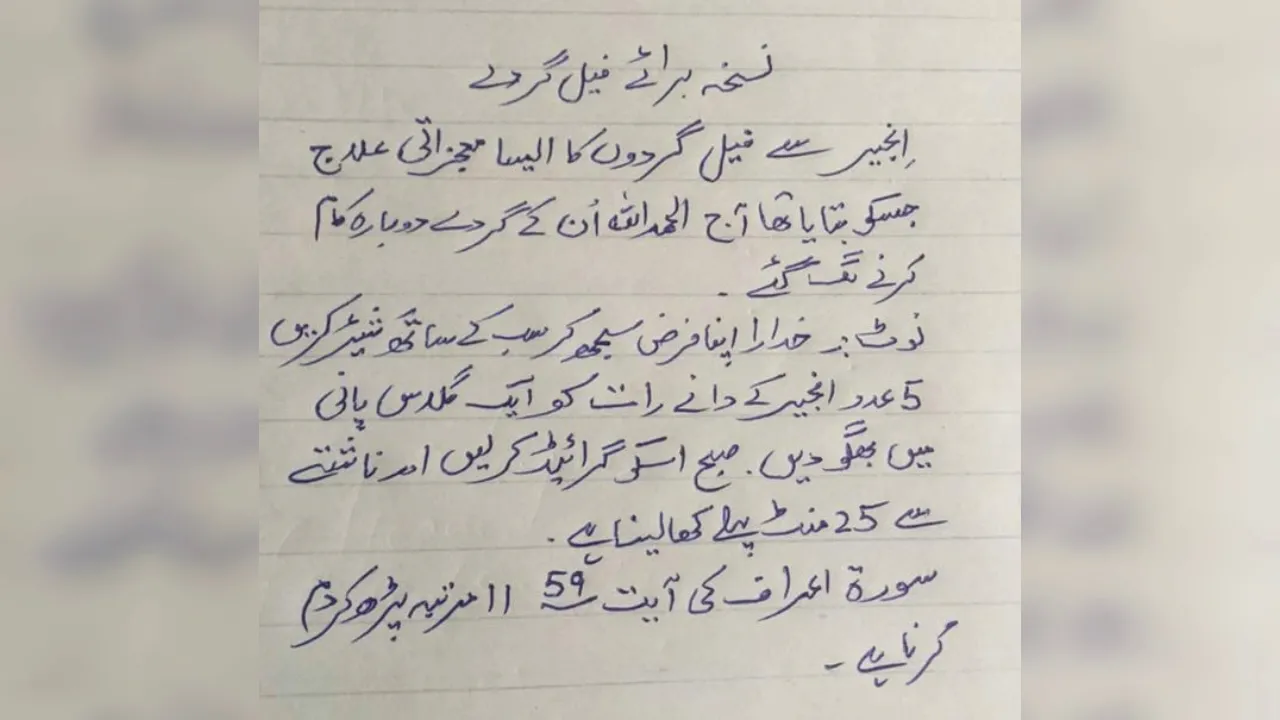 نسخہ برائے فیل گردے
اِنجیر سے فیل گردوں کا ایسا معجزاتی علاج
جسکو بتایا تھا آج الحمداللہ اُن کے گردے دوبارہ کام
کرنے لگ گئے ۔
نوٹ :۔ خدارا اپنا فرض سمجھ کر سب کے ساتھ شیئر کریں
5 عدد انجیر کے دانے رات کو ایک گلاس پانی
میں بھگو دیں ۔ صبح اسکو گرائینڈ کر لیں اور ناشتے
سے 25 منٹ پہلے کھا لینا ہے ۔
سورۃ اعراف کی آیت 59 11 مرتبہ پڑھ کر دم
کرنا ہے ۔